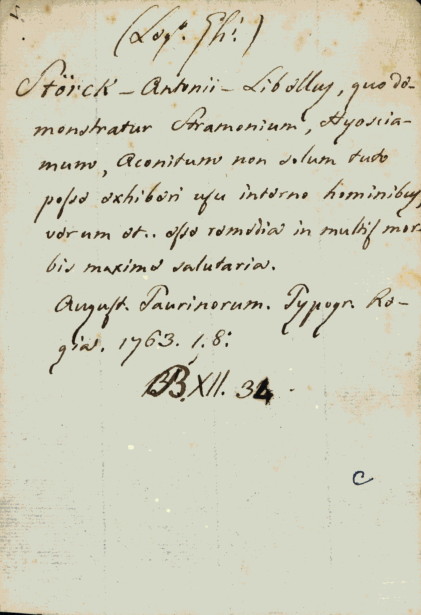 (Leg.º Ghi.)
Störck - Antonii - Libellus, quo de-
monstratur Stramonium, Hyoscia-
mum, Aconitum non solum tuto
posse exhiberi usu interno hominibus,
verum et.. esse remedia in multis mor-
bis maxime salutaria.
August. Taurinorum. Typogr. Re-
gia. 1763. 1. 8:
BB. XII. 34.
C